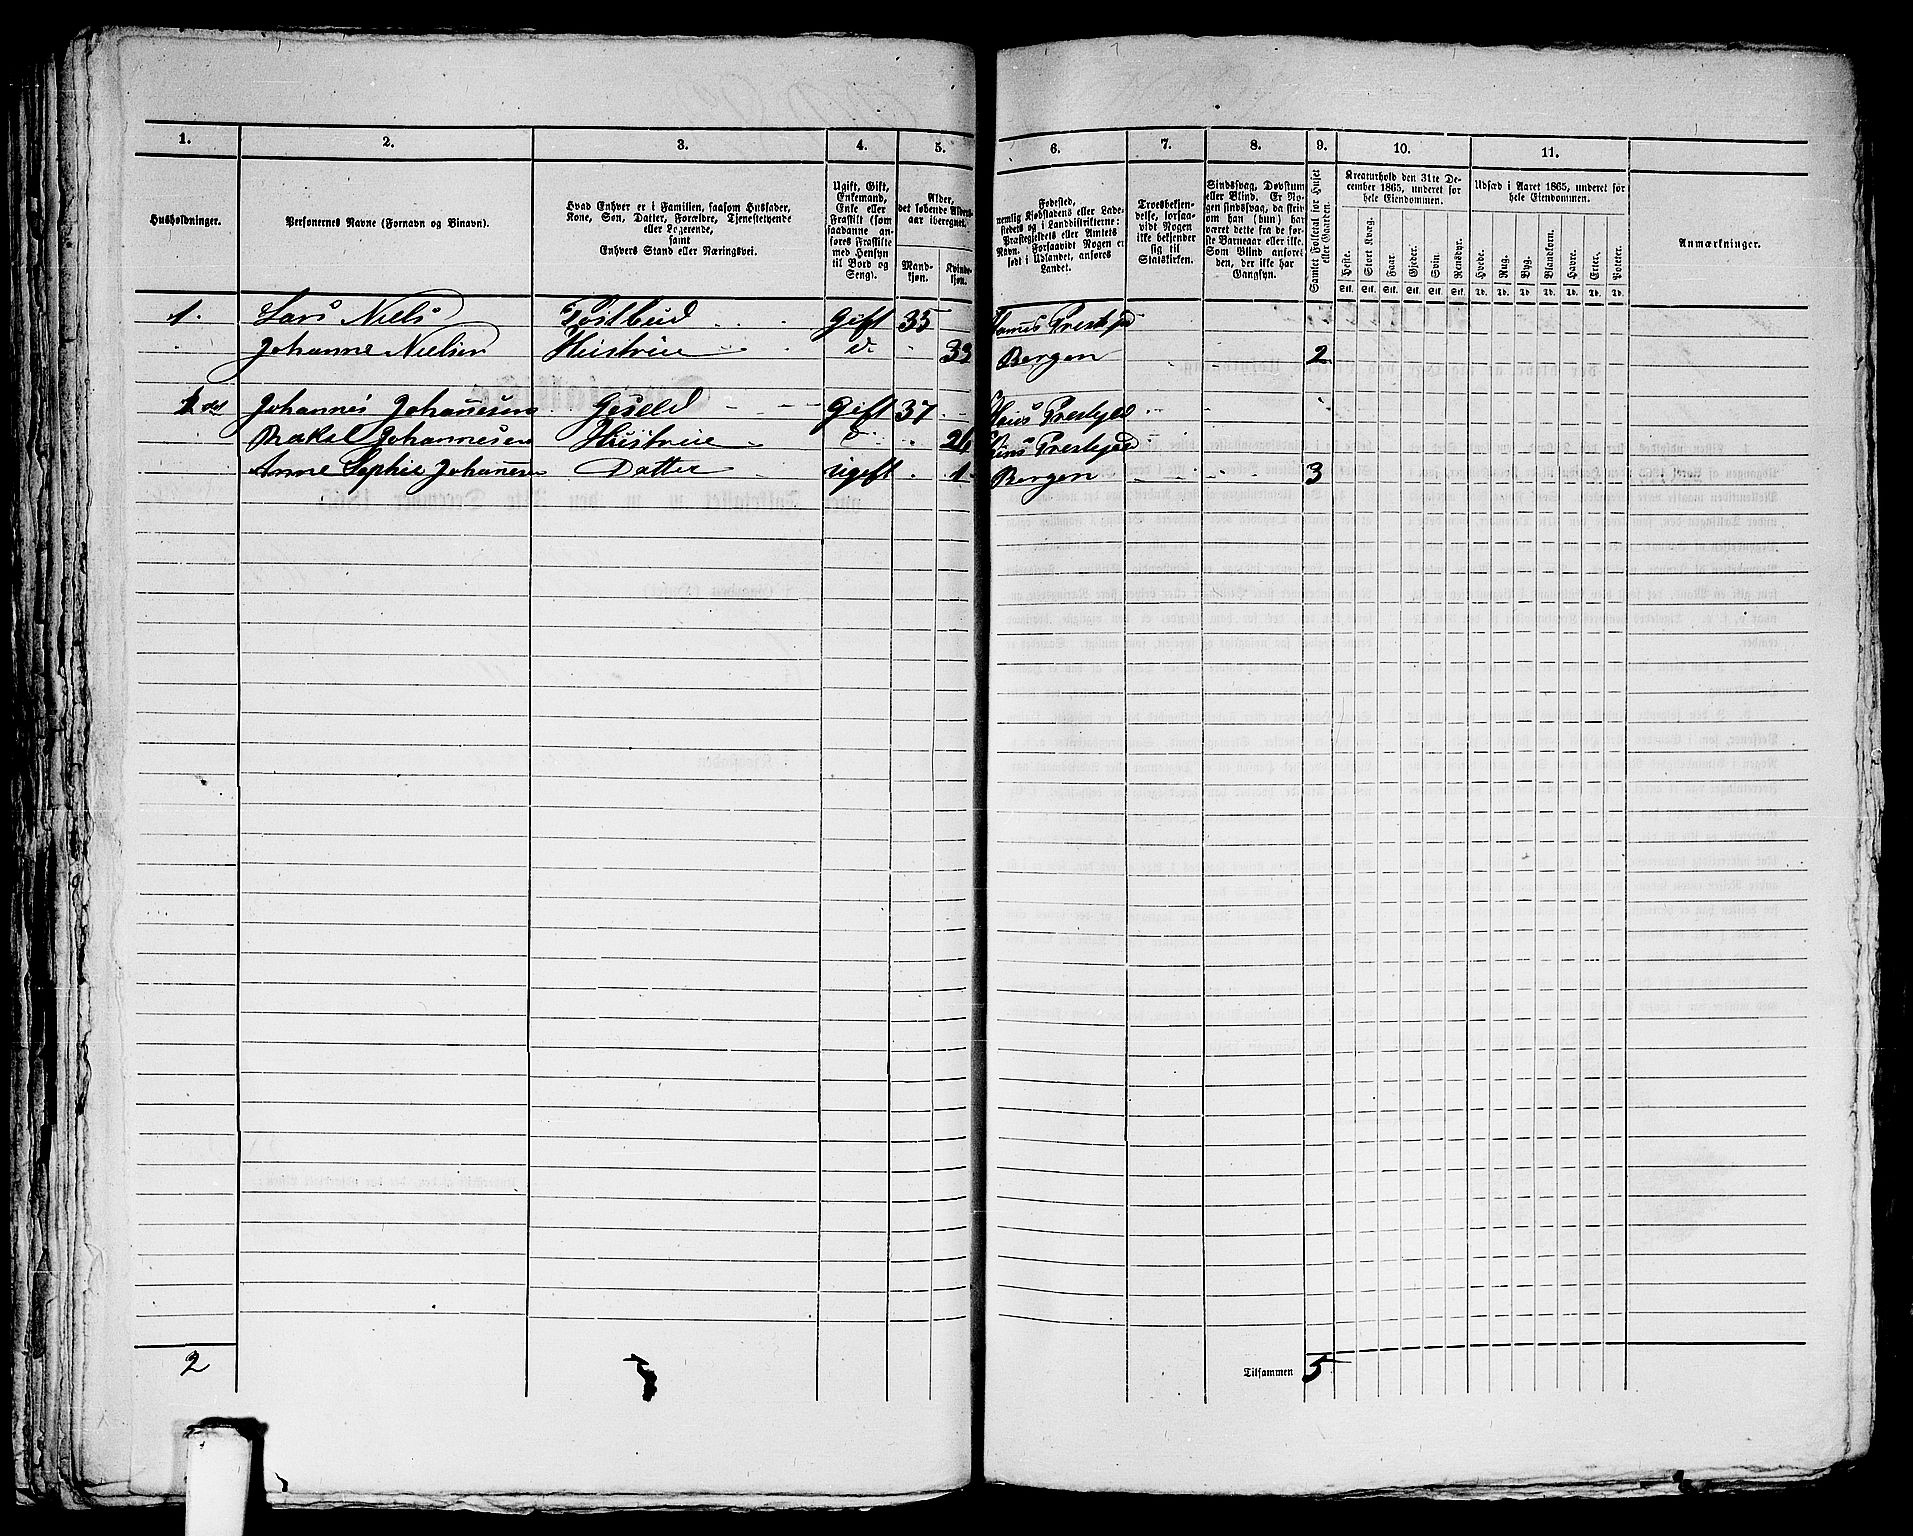 1. 2. 3. 4. 5. 6. 7. 8. 9. 10. 11.
Husholdninger.
Personernes Navne (Fornavn og Binavn).
Hvad Enhver er i Familien, saasom Husfader,
Kone, Søn, Datter, Forældre, Tjenestetyende
eller Logerende,
samt
Enhvers Stand eller Næringsvei.
Ugift, Gift,
Enkemand,
Enke eller
Fraskilt (som
saadanne an-
føres Fraskilte
med Hensyn
til Bord og
Seng).
Alder,
det løbende Alders-
aar iberegnet.
Mand-
kjøn.
Kvinde-
kjøn.
Fødested,
nemlig Kjøbstadens eller Lade-
stedets og i Landdistrikterne:
Præstegjeldets eller Amtets
Navn. Forsaavidt Nogen er
født i Udlandet, anføres
Landet.
Troesbekjen-
delse, forsaa-
vidt Nogen
ikke bekjender
sig til
Statskirken.
Sindssvag, Døvstum
eller Blind. Er No-
gen sindssvag, da skriv
om han (hun) har
været dette fra de før-
ste Barneaar eller ikke.
Som Blind anføres
den, der ikke har
Gangsyn.
Samlet Folketal for Huset
eller Gaarden.
Kreaturhold den 31te De-
cember 1865, underet før
hele Eiendommen.
Heste. Stort Kvæg. Faar. Gjeder. Svin. Rensdyr.
Stk. Stk. Stk. Stk. Stk. Stk.
Udsæd i Aaret 1865, underet før
hele Eiendommen.
Hvede. Rug. Byg. Blandkorn. Havre. Erter. Poteter.
Td. Td. Td. Td. Td. Td. Td.
Anmærkninger.
1. Lars Niels Postbud Gift 35 Prestgjd
Johanne Nielsen Hustrue d. 33 Bergen 2
Johannes Johannesen Gift 37 Prestgjeld
Rakel Johannesen Hustrue 26 Prestgjeld
Anne Sophie Johannesen Datter ugift 1 Bergen 3
2 Tilsammen 5